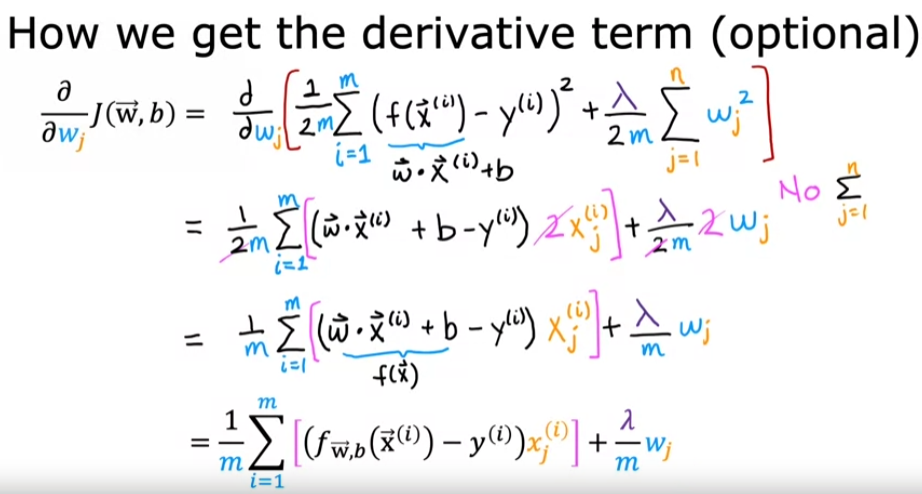 How we get the derivative term (optional)
∂/∂w_j J(w⃗, b) = d/dw_j [ 1/2m Σ_{i=1}^{m} (f(x⃗^(i)) - y^(i))² + λ/2m Σ_{j=1}^{n} w_j² ]
w⃗·x⃗^(i)+b
= 1/2m Σ_{i=1}^{m} [(w⃗·x⃗^(i) + b - y^(i)) 2x_j^(i)] + λ/2m 2w_j No Σ_{j=1}^{n}
= 1/m Σ_{i=1}^{m} [(w⃗·x⃗^(i) + b - y^(i)) x_j^(i)] + λ/m w_j
f(x⃗)
= 1/m Σ_{i=1}^{m} [(f_{w⃗,b}(x⃗^(i)) - y^(i))x_j^(i)] + λ/m w_j